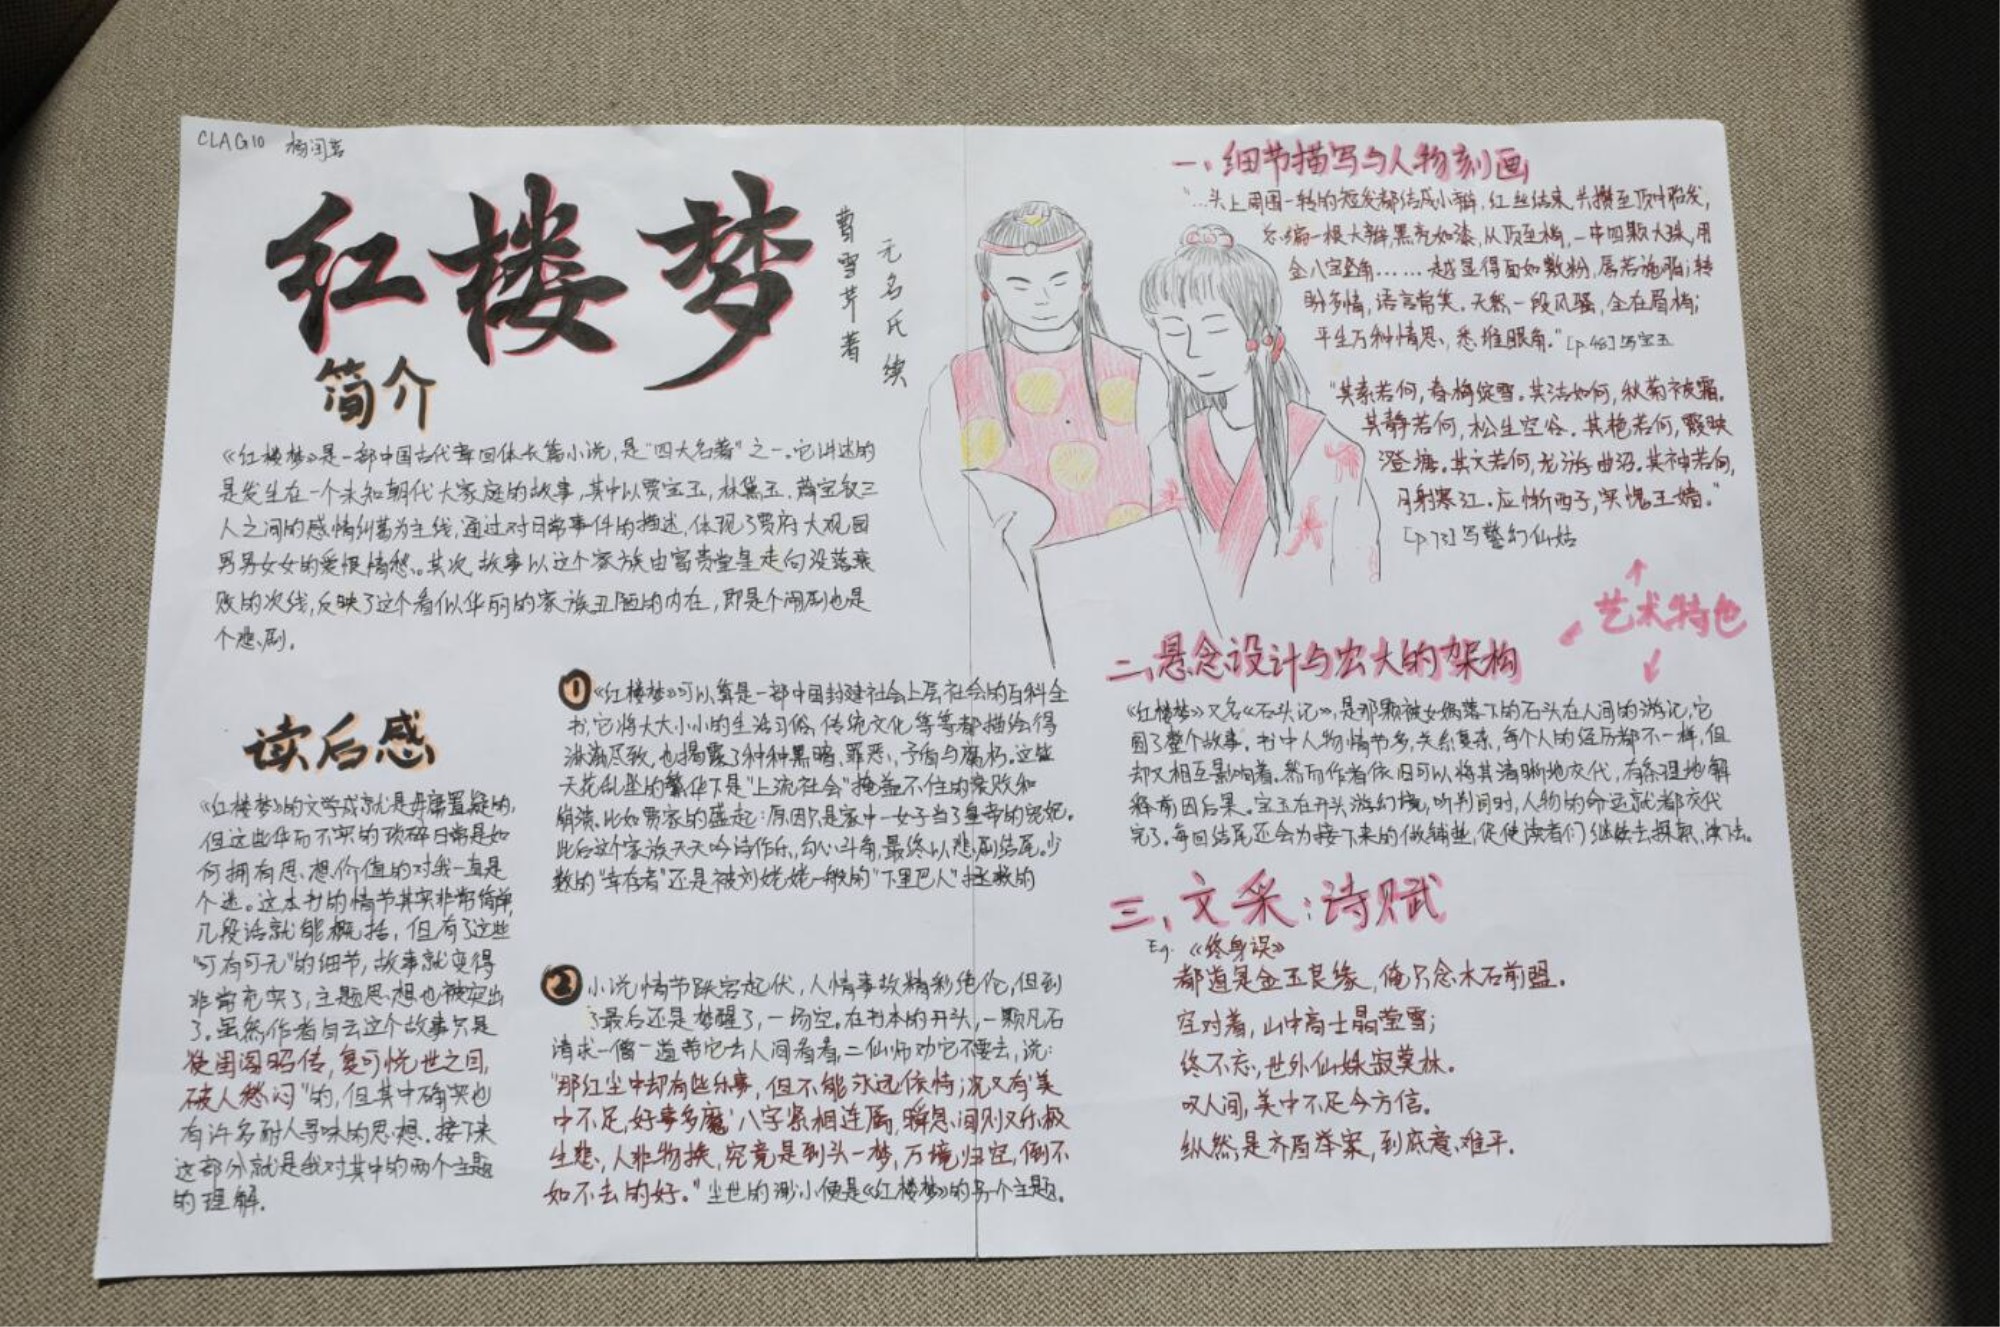 CLAG10
红楼梦
曹雪芹著
无名氏续
简介
《红楼梦》是一部中国古代章回体长篇小说,是“四大名著”之一。它讲述的
是发生在一个未知朝代大家庭的故事,其中以贾宝玉,林黛玉,薛宝钗三
人之间的感情纠葛为主线,通过对日常事件的描述,体现了贾府大观园
男男女女的爱恨情愁。其次,故事以这个家族由富贵堂皇走向没落衰
败的次线,反映了这个看似华丽的家族丑陋的内在,即是个闹剧也是
个悲剧。
读后感
《红楼梦》的文学成就是毋庸置疑的,
但这些华而不实的琐碎日常是如
何拥有思想价值的对我一直是
个迷。这本书的情节其实非常简单,
几段话就能概括,但有了这些
“可有可无”的细节,故事就变得
非常充实了,主题思想也被突出
了。虽然作者自云这个故事只是
使闺阁昭传,复可悦世之目,
破人愁闷”的,但其中确实也
有许多耐人寻味的思想。接下来
这部分就是我对其中的两个主题
的理解。
①《红楼梦》可以算是一部中国封建社会上层社会的百科全
书,它将大大小小的生活习俗,传统文化等等都描绘得
淋漓尽致,也揭露了种种黑暗、罪恶、矛盾与腐朽。这些
天花乱坠的繁华下是“上流社会”掩盖不住的衰败和
崩溃。比如贾家的盛起:原因只是家中一女子当了皇帝的宠妃。
此后这个家族天天吟诗作乐,勾心斗角,最终以悲剧结尾。少
数的“幸存者”还是被刘姥姥一般的“下里巴人”拯救的
②小说情节跌宕起伏,人情事故精彩绝伦,但到
了最后还是梦醒了,一场空。在书本的开头,一颗凡石
请求一僧一道带它去人间看看,二仙师劝它不要去,说:
“那红尘中却有些乐事,但不能永远依恃;况又有‘美
中不足,好事多魔’八字紧相连属,瞬息间则又乐极
生悲,人非物换,究竟是到头一梦,万境归空,倒不
如不去的好。”尘世的渺小便是《红楼梦》的另个主题。
一、细节描写与人物刻画
“…头上周围一转的短发都结成小辫,红丝结束,共攒至顶中胎发,
总编一根大辫,黑亮如漆,从顶至梢,一串四颗大珠,用
金八宝坠角……越显得面如敷粉,唇若施脂;转
盼多情,语言常笑。天然一段风骚,全在眉梢;
平生万种情思,悉堆眼角。”[p.48]写宝玉
“其素若何,春梅绽雪。其洁如何,秋菊被霜。
其静若何,松生空谷。其艳若何,霞映
澄塘。其文若何,龙游曲沼。其神若何,
月射寒江。应惭西子,实愧王嫱。”
[p.73]写警幻仙姑
艺术特色
二、悬念设计与宏大的架构
《红楼梦》又名《石头记》,是那颗被女娲落下的石头在人间的游记,它
圆了整个故事。书中人物情节多,关系复杂,每个人的经历都不一样,但
却又相互影响着。然而作者依旧可以将其清晰地交代,有条理地解
释前因后果。宝玉在开头游幻境,听判词时,人物的命运就都交代
完了。每回结尾还会为接下来的做铺垫,促使读者们继续去探索、读法。
三、文采:诗赋
Eg. 《终身误》
都道是金玉良缘,俺只念木石前盟。
空对着,山中高士晶莹雪;
终不忘,世外仙姝寂寞林。
叹人间,美中不足今方信。
纵然是齐眉举案,到底意难平。